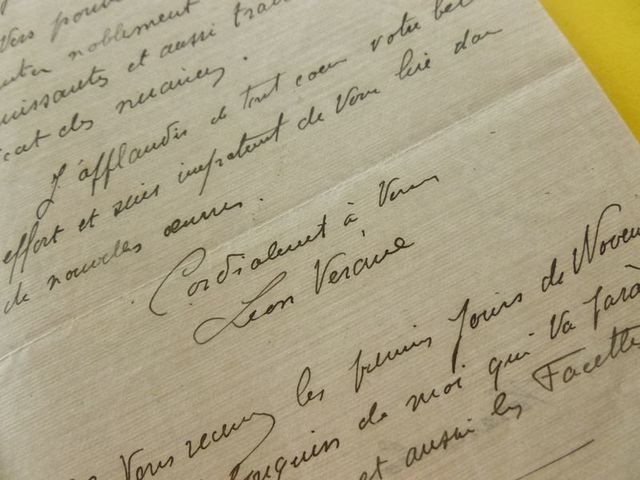 Vers pouv
noblement
puissants et aussi
icat des nuances.
J'applaudis de tout coeur votre bel
effort et suis impatient de vous lire dans
de nouvelles œuvres.
Cordialement à Vous
Léon Vérane
Vous recevrez les premiers jours de Novem
bouquin de moi qui va parà
et aussi les Facettes